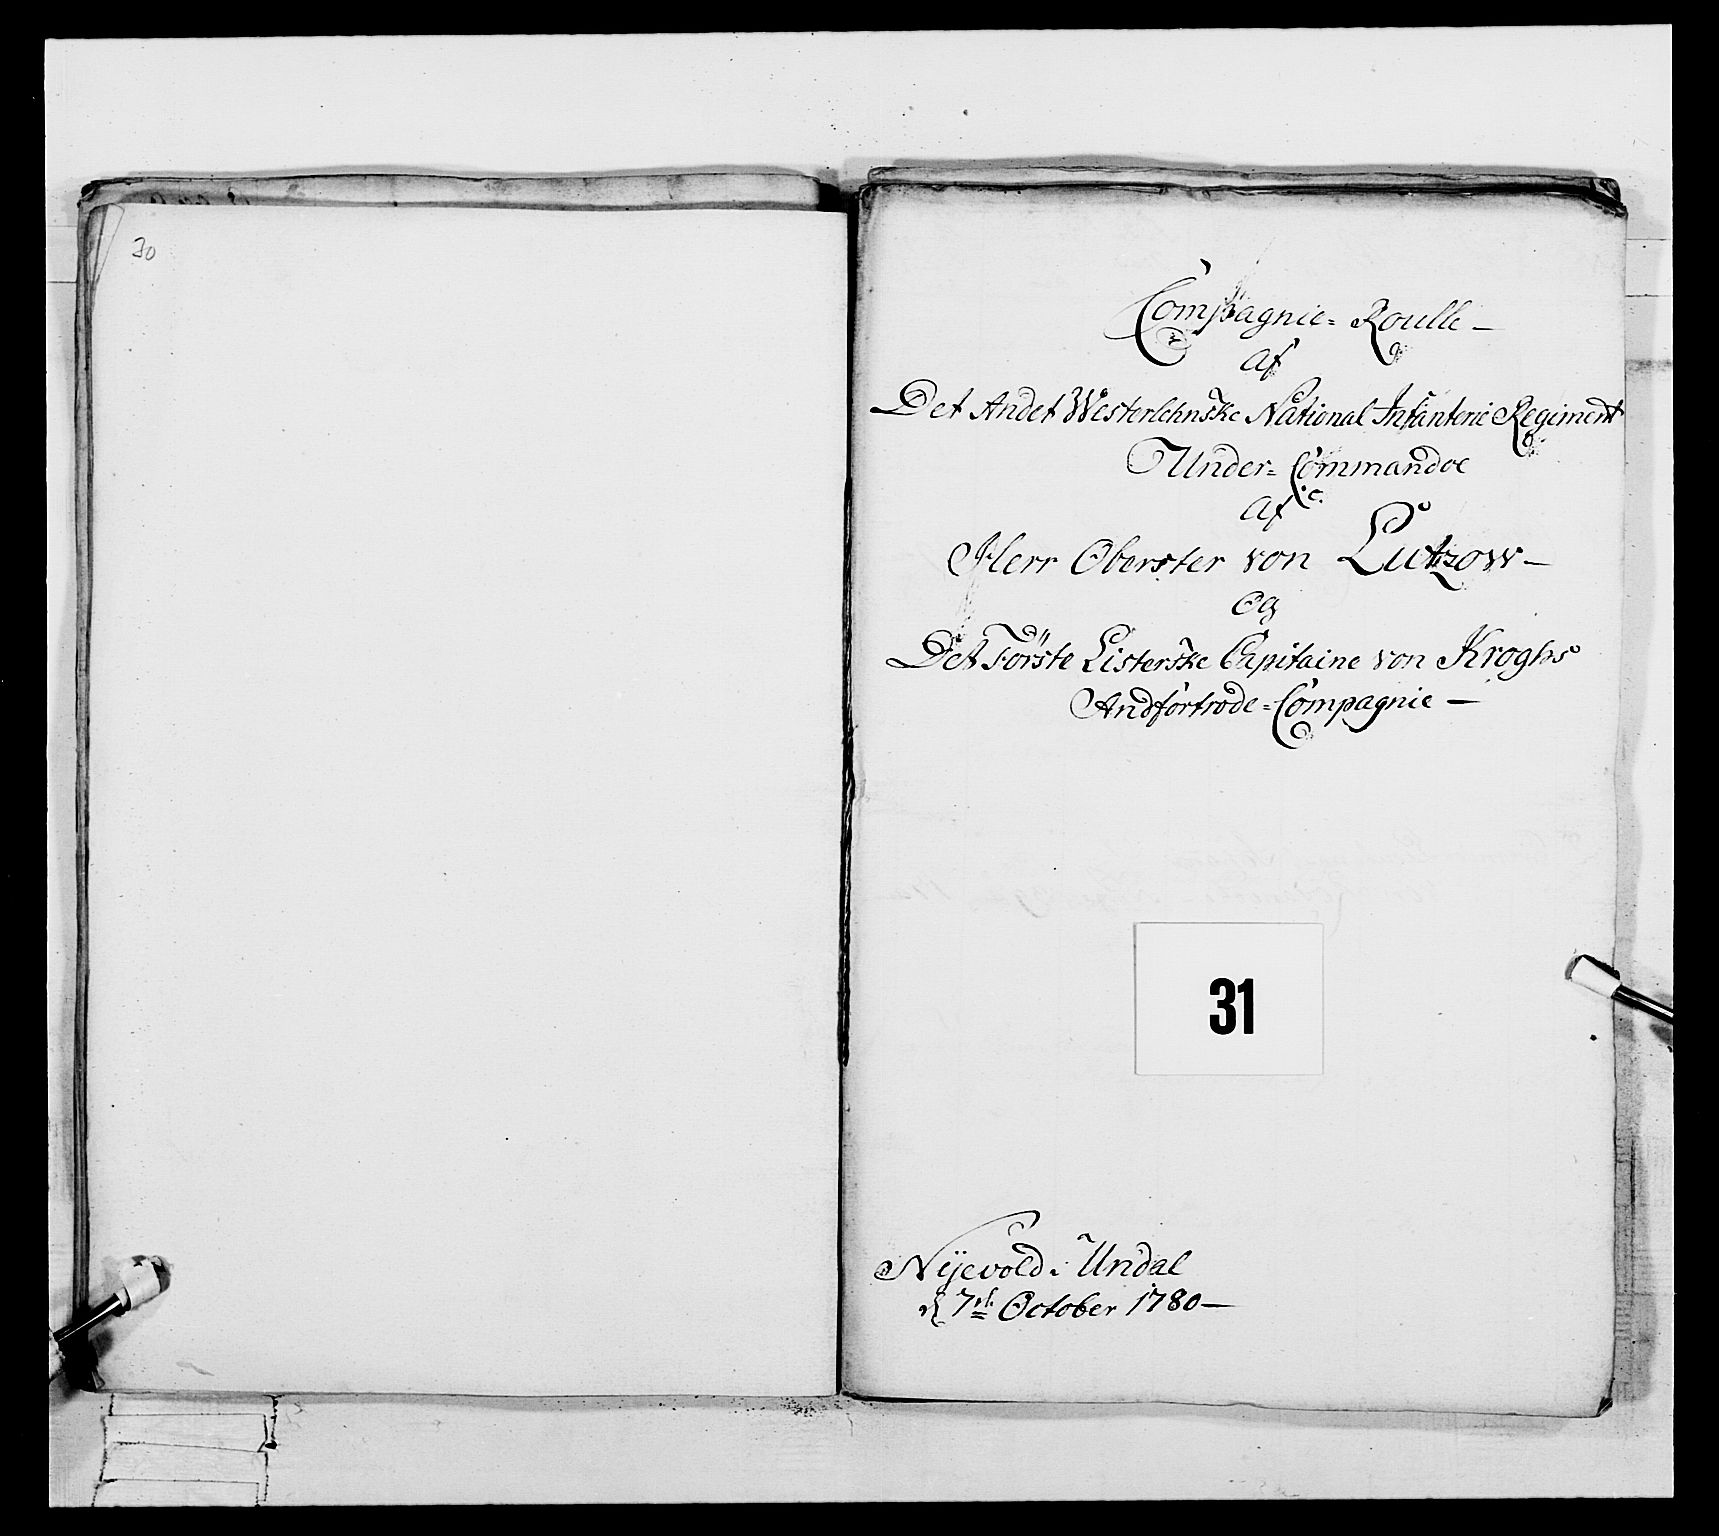 30
Compagnie= Roulle—
Af
Det Andet Westerlehnske National Infanterie Regiment
Under= Commandoe
Af
Herr Oberster von Lutzow—
Og
Det Förste Listerske Capitaine von Kroghs
Andfortrode=Compagnie—
31
Nijevold i Undal
d 7de October 1780—